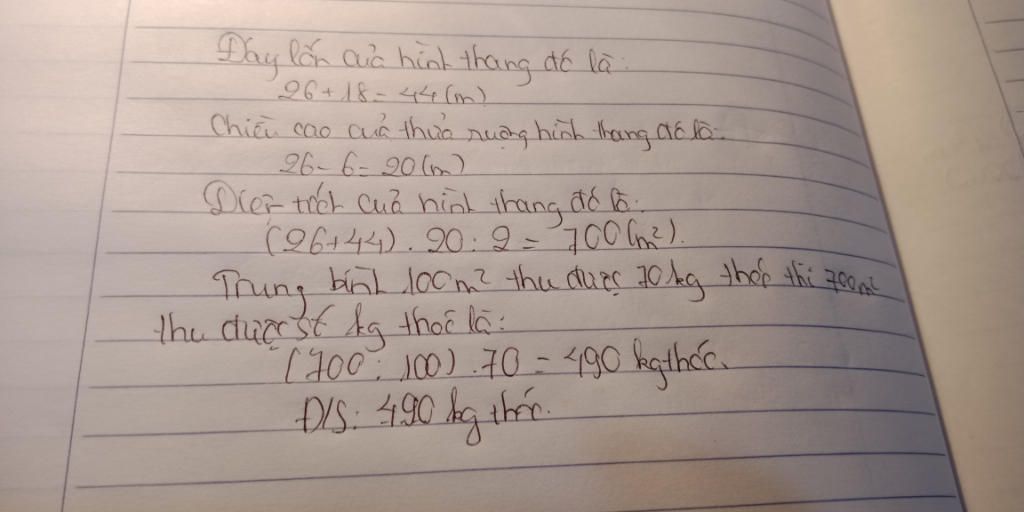 Đáy lớn của hình thang đó là:
26 + 18 = 44 (m)
Chiều cao của thửa ruộng hình thang đó là:
26 - 6 = 20 (m)
Diện tích của hình thang đó là:
(26+44) . 20 : 2 = 700 (m²).
Trung bình 100 m² thu được 70 kg thóc thì 700m²
thu được số kg thóc là:
(700 : 100) . 70 = 490 kg thóc.
Đ/S: 490 kg thóc.